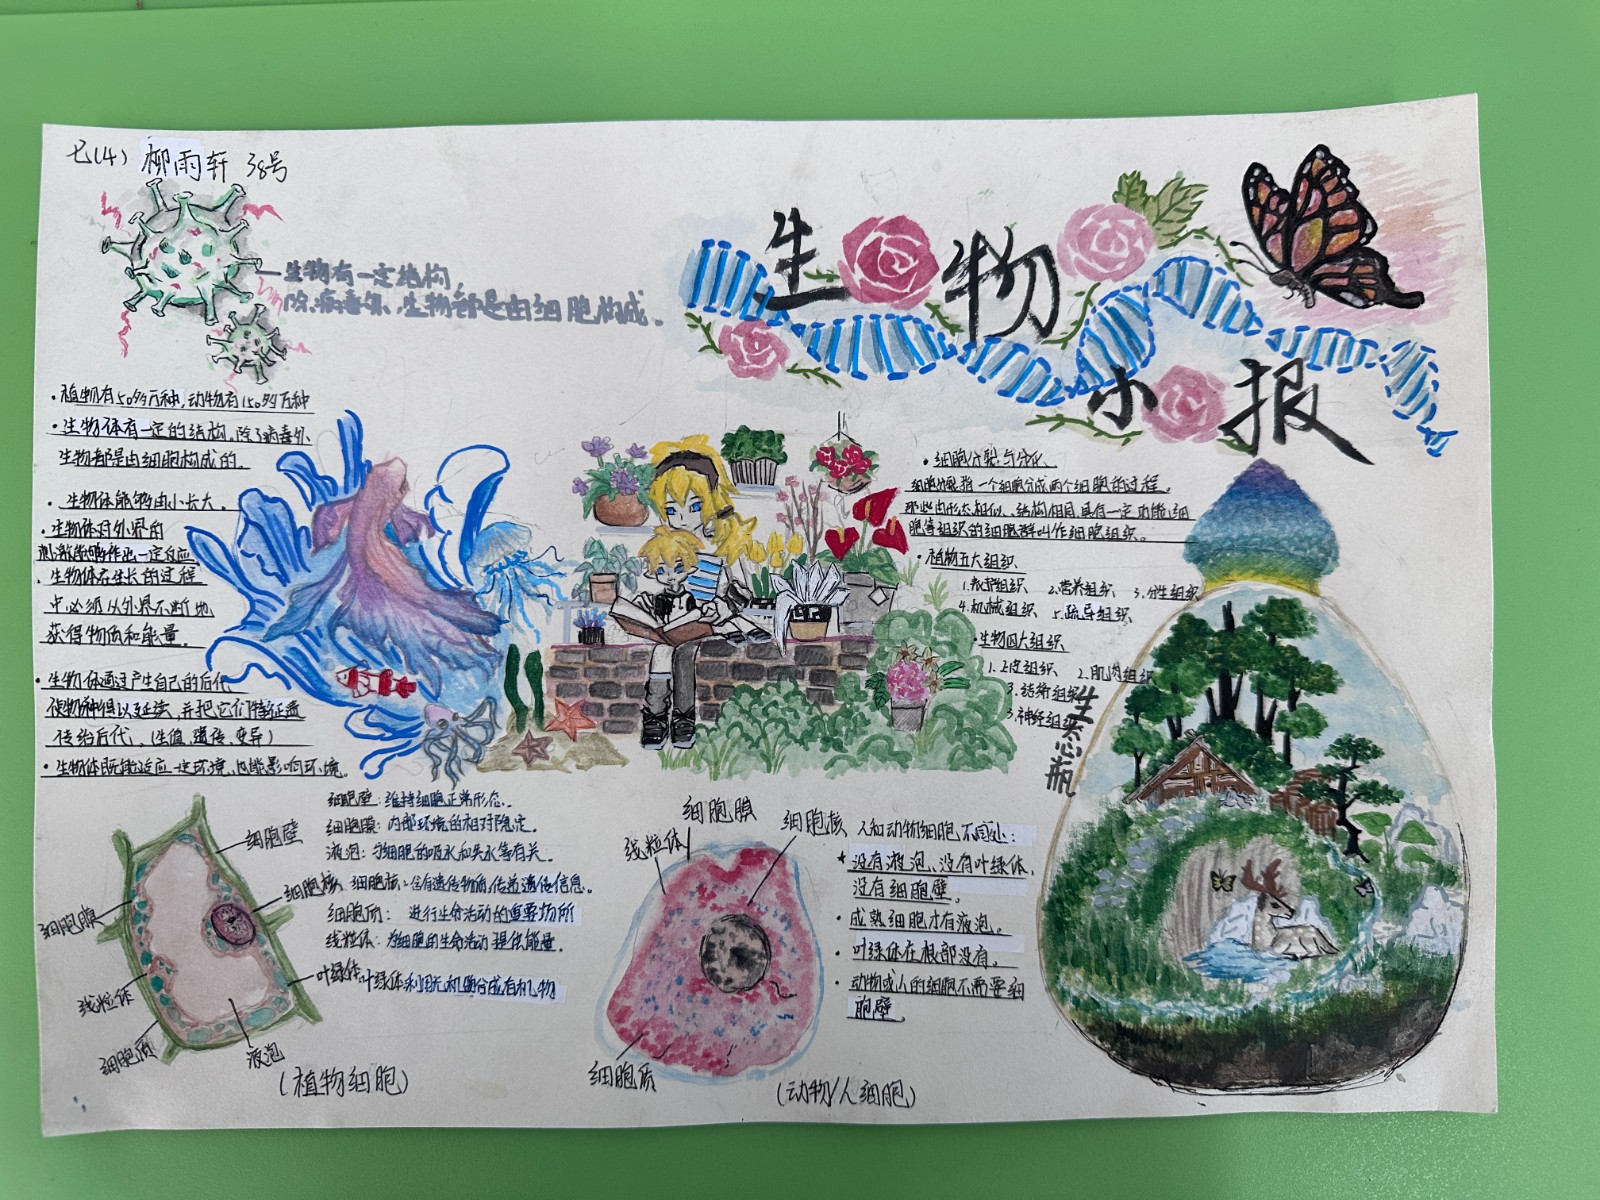 七(4) 柳雨轩 38号
生物小报
生物有一定结构,
除病毒外,生物都是由细胞构成。
·植物有50多万种,动物有150多万种
·生物体有一定的结构,除了病毒外
生物都是由细胞构成的。
·生物体能够由小长大。
·生物体对外界的
刺激能够作出一定反应
·生物体在生长的过程
中,必须从外界不断地
获得物质和能量。
·生物体通过产生自己的后代
使物种得以延续,并把它们特征遗
传给后代。(生殖、遗传、变异)
·生物体既能适应一定环境,也能影响环境。
·细胞分裂与分化
细胞分裂指一个细胞分成两个细胞的过程。
那些由形态相似、结构相同,具有一定功能细
胞等组织的细胞群叫作细胞组织。
·植物五大组织
1.保护组织 2.营养组织 3.分生组织
4.机械组织 5.疏导组织
·生物四大组织
1.上皮组织 2.肌肉组织
3.结缔组织
3.神经组织
生态瓶
细胞壁:维持细胞正常形态。
细胞膜:内部环境的相对稳定。
液泡:与细胞的吸水和失水等有关。
细胞核:含有遗传物质,传递遗传信息。
细胞质:进行生命活动的重要场所
线粒体:为细胞的生命活动提供能量。
叶绿体利用无机物合成有机物
细胞壁
细胞核
细胞膜
叶绿体
线粒体
细胞质
液泡
(植物细胞)
细胞膜
线粒体
细胞核
细胞质
(动物/人细胞)
人和动物细胞不同处:
★没有液泡、没有叶绿体,
没有细胞壁
·成熟细胞才有液泡。
·叶绿体在根部没有。
·动物或人的细胞不需要细
胞壁